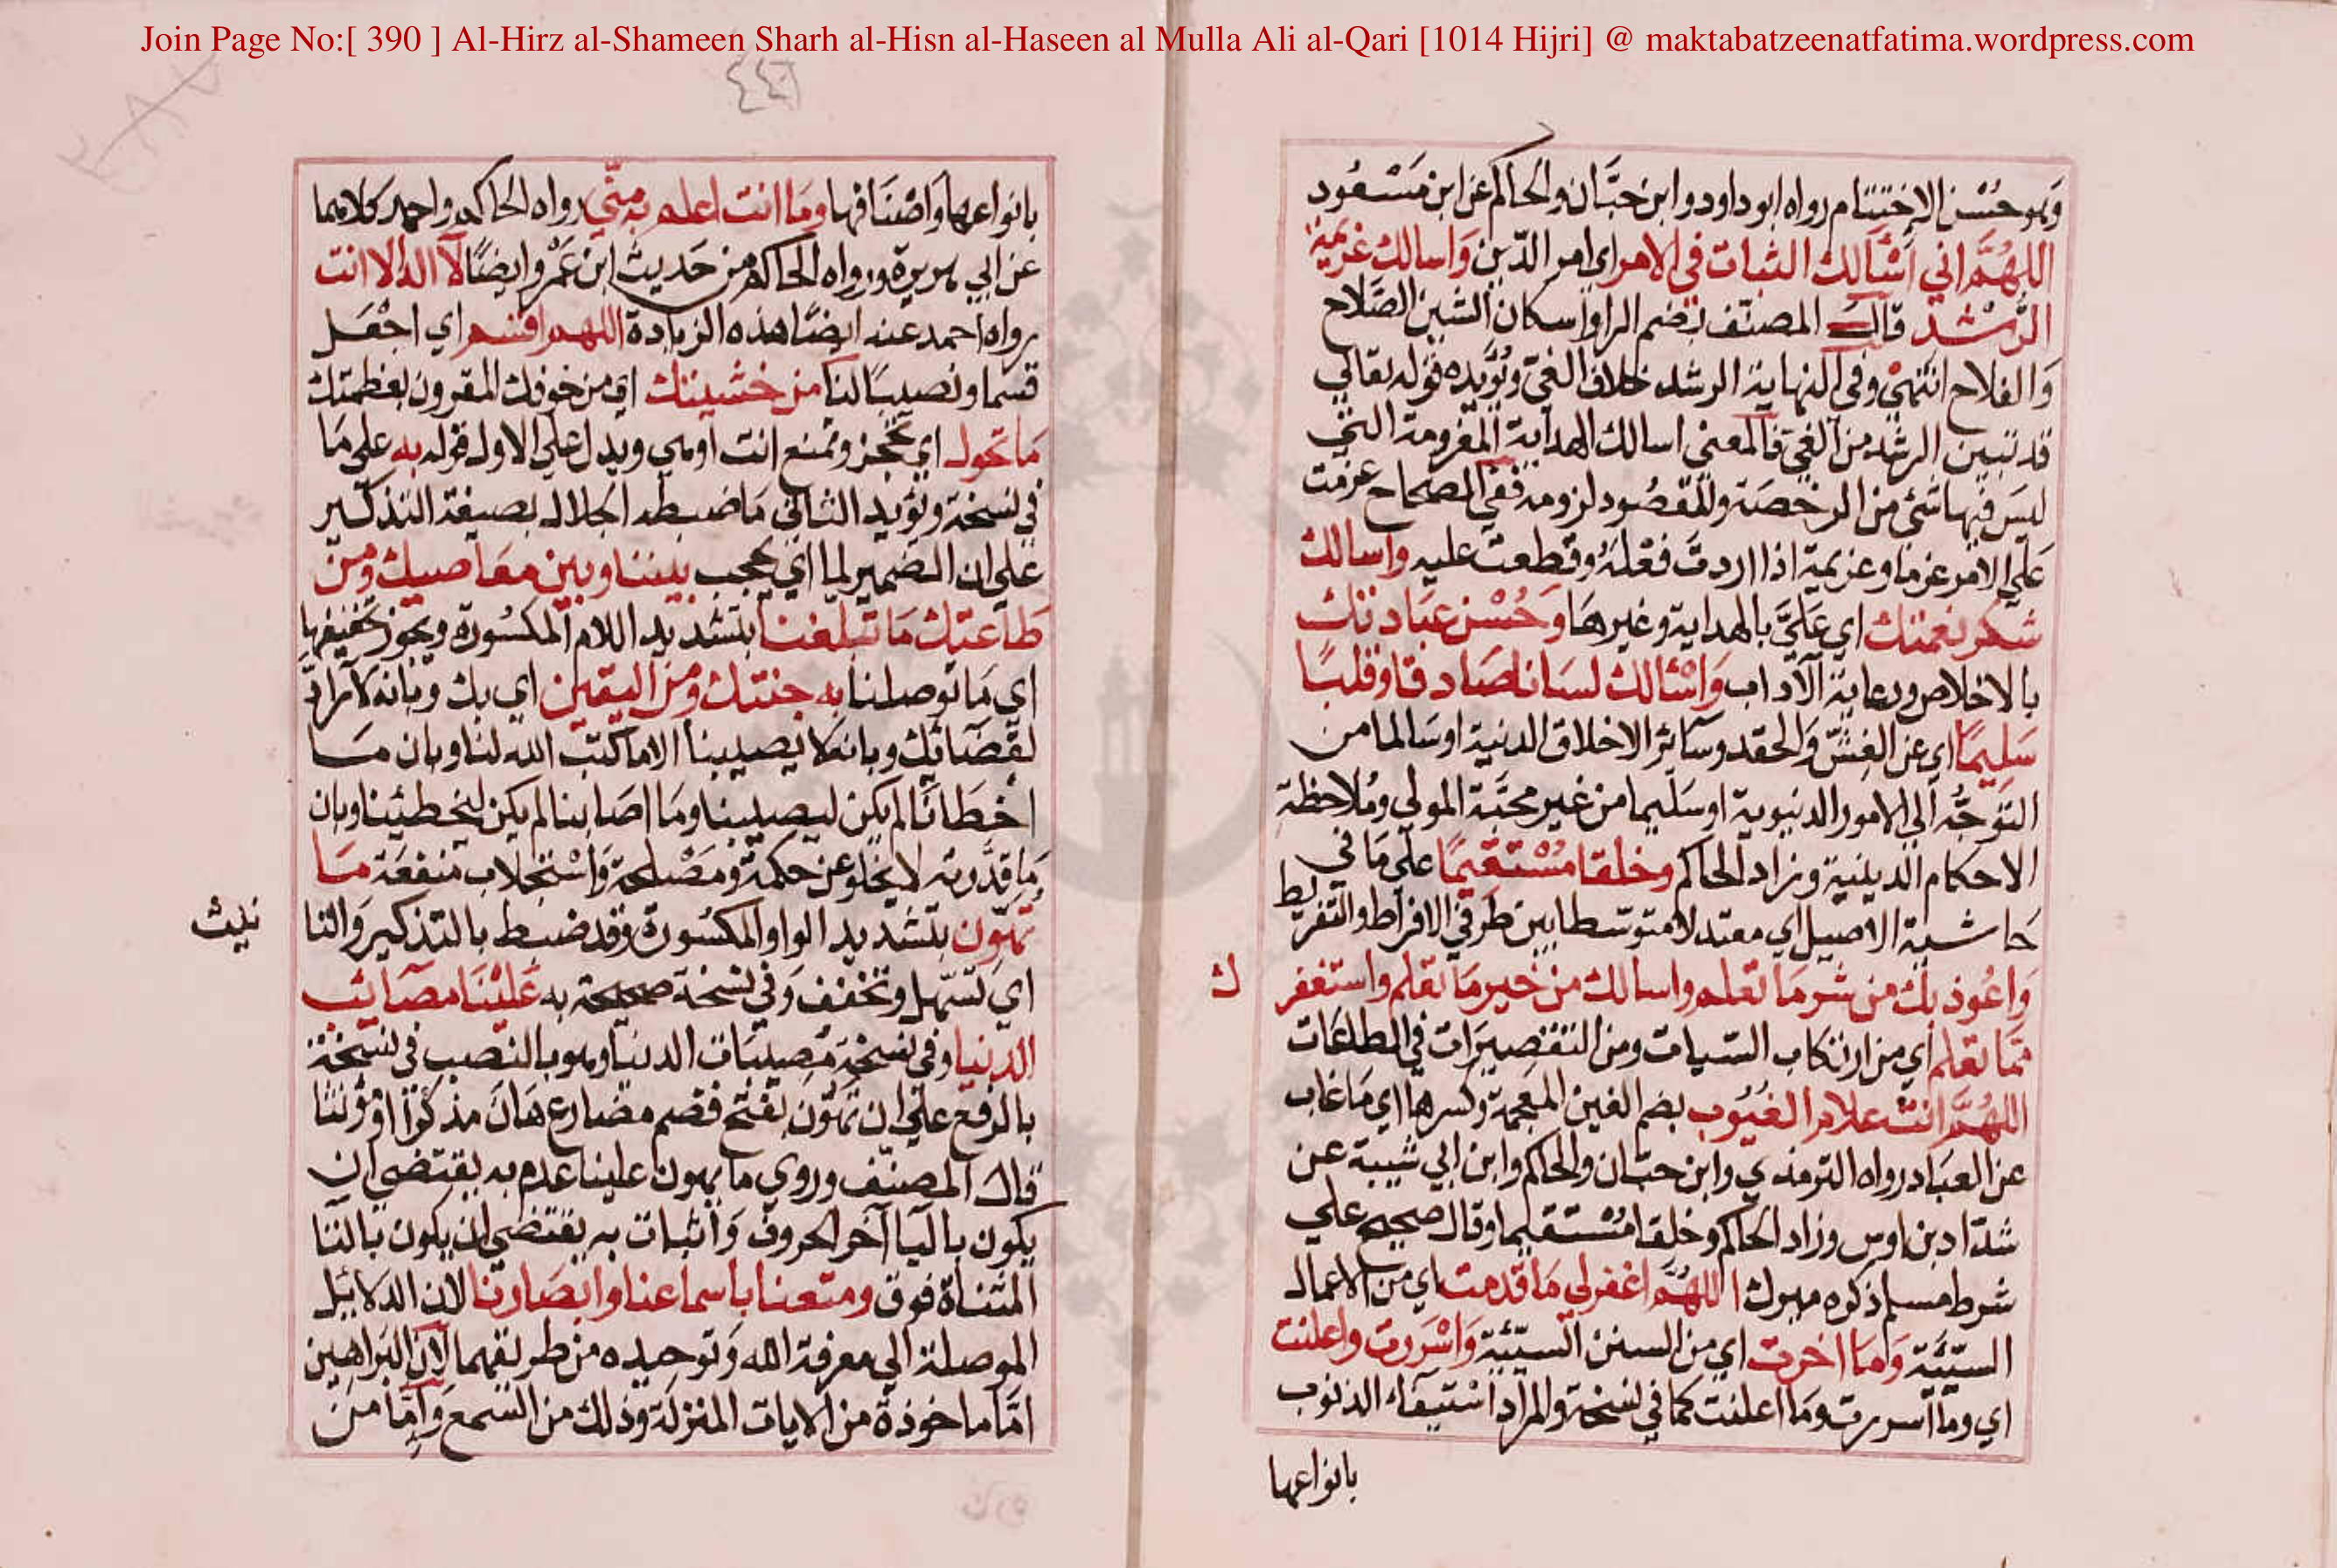 Join Page No:[ 390 ] Al-Hirz al-Shameen Sharh al-Hisn al-Haseen al Mulla Ali al-Qari [1014 Hijri] @ maktabatzeenatfatima.wordpress.com
وهو حُسْن الاِخْتِتام رواه ابوداود وابن حبَّان والحاكم عن ابن مَسْعُود
اللهُمَّ اني أسْألك الثبات في الامر اي امر الدّين وَاسالك عَزيمَة
الرُّشْد قال المصنّف بضم الرا واسكان الشين الصَّلاح
وَالفلاح انتهيْ وفي النهاية الرشد خلاف الغيّ ويُؤيِّده قوله تعالي
قد تبين الرشد من الغيّ فالمعني اسالك الهداية المعزومة التي
ليسَ فيها شئ من الرخصَة والمقصُود لزومه ففي الصحاح عزمت
عَلي الامر عزما وعزيمة اذا اردتَ فعْلهُ وقطعتَ عليه واسالك
شكر نعمتك اي عَليَّ بالهداية وغيرهَا وَحُسْن عبَادتك
بالاخلاص ورعاية الآداب وَاسْئالك لسَانا صَادقا وقلبًا
سَلِيمًا اي عن الغِشّ وَالحقد وسَائر الاخلاق الدنية اوسَالما من
التوجُّه الي الامور الدنيوية او سَليما من غير محبّة المولي ومُلاحظة
الاحكام الدينية وزاد الحاكم وخلقا مُسْتقيمًا علي مَا في
حَاشية الاصيل اي معتدلا متوسّطا بين طرفي الافراط والتفريط
وَاعُوذ بك من شر مَا تعلم واسالك من خير مَا تعلم واستغفر
ك
ممّا تعلم اي من ارتكاب السّيات ومن التقصيرَات في الطاعَات
اللهُمَّ انت علام الغُيُوب بضم الغين المعجمة وكسرها اي مَا غاب
عن العبَاد رواه الترمذي وابن حبّان والحاكم وابن ابي شيبة عن
شدّاد بن اوس وزاد الحاكم وخلقا مُسْتقيما وقال صحيح علي
شرط مسلم ذكره ميرك اللهُمَّ اغفر لي مَا قدمت اي من الاعمال
السيّئة وَمَا اخرت اي من السنن السيّئة وَاسْرَرت واعلنت
اي وما اسررت ومَا اعلنت كما في نسخة والمراد استيفاء الذنوب
بانواعها
بانواعها وَاصْنَافها ومَا انت اعلم به منّي رواه الحاكم واحمد كلاهما
عن ابي هريرة ورواه الحاكم من حَديث ابن عَمْرو ايضًا لآ اله الا انت
رواه احمد عنه ايضًا هذه الزيادة اللهم اقسم اي اجْعَل
قسما ونصيبًا لنا من خشيتك اي من خوفك المقرون بعظمتك
مَا تحول اي تحجز وتمنع انت اوهي ويدل علي الاول قوله به علي مَا
في نسخة ويؤيد الثاني مَا ضبطه الجلال بصيغة التذكير
علي ان الضمير لما اي يحجب بيننا وبين معَاصيك ومن
طَاعتك مَا تبلغنا بتشديد اللام المكسُورة ويجوز تخفيفها
اي مَا توصلنا به جنتك ومن اليقين اي بك وبانه لا رادّ
لقضَائك وبانه لا يصيبنا الا ما كتب الله لنا وبان مَا
اخطَانا لم يكن ليصيبنا ومَا اصَابنا لم يكن ليخطئنا وبان
مَا قدَّرته لا يخلو عن حكمة ومَصْلحة وَاسْتجلاب منفعَة مَا
تهوّن بتشديد الواو المكسُورة وقد ضبط بالتذكير والتا
نيث
اي تسّهل وتخفف وَفي نسخة صحيحة به عَليْنا مصَائب
الدنيا وفي نسخة مُصِيبَات الدنيا وهو بالنصب في نسخة
بالرفع علي ان تَهُون بفتح فضم مضارع هَان مذكرًا او مؤنثا
قال المصنّف وروي ما يهون علينا عدم به يقتضي ان
يكون باليا آخر الحروف وَاثبات به يقتضي ان يكون بالتا
المثناة فوق ومتعنا باسماعنا وابصَارنا لان الدلايل
الموصلة الي معرفة الله وَتوحيده من طريقهما لان البَراهين
امّا ماخوذة من الايات المنزلة وذلك من السّمع وَامّا من